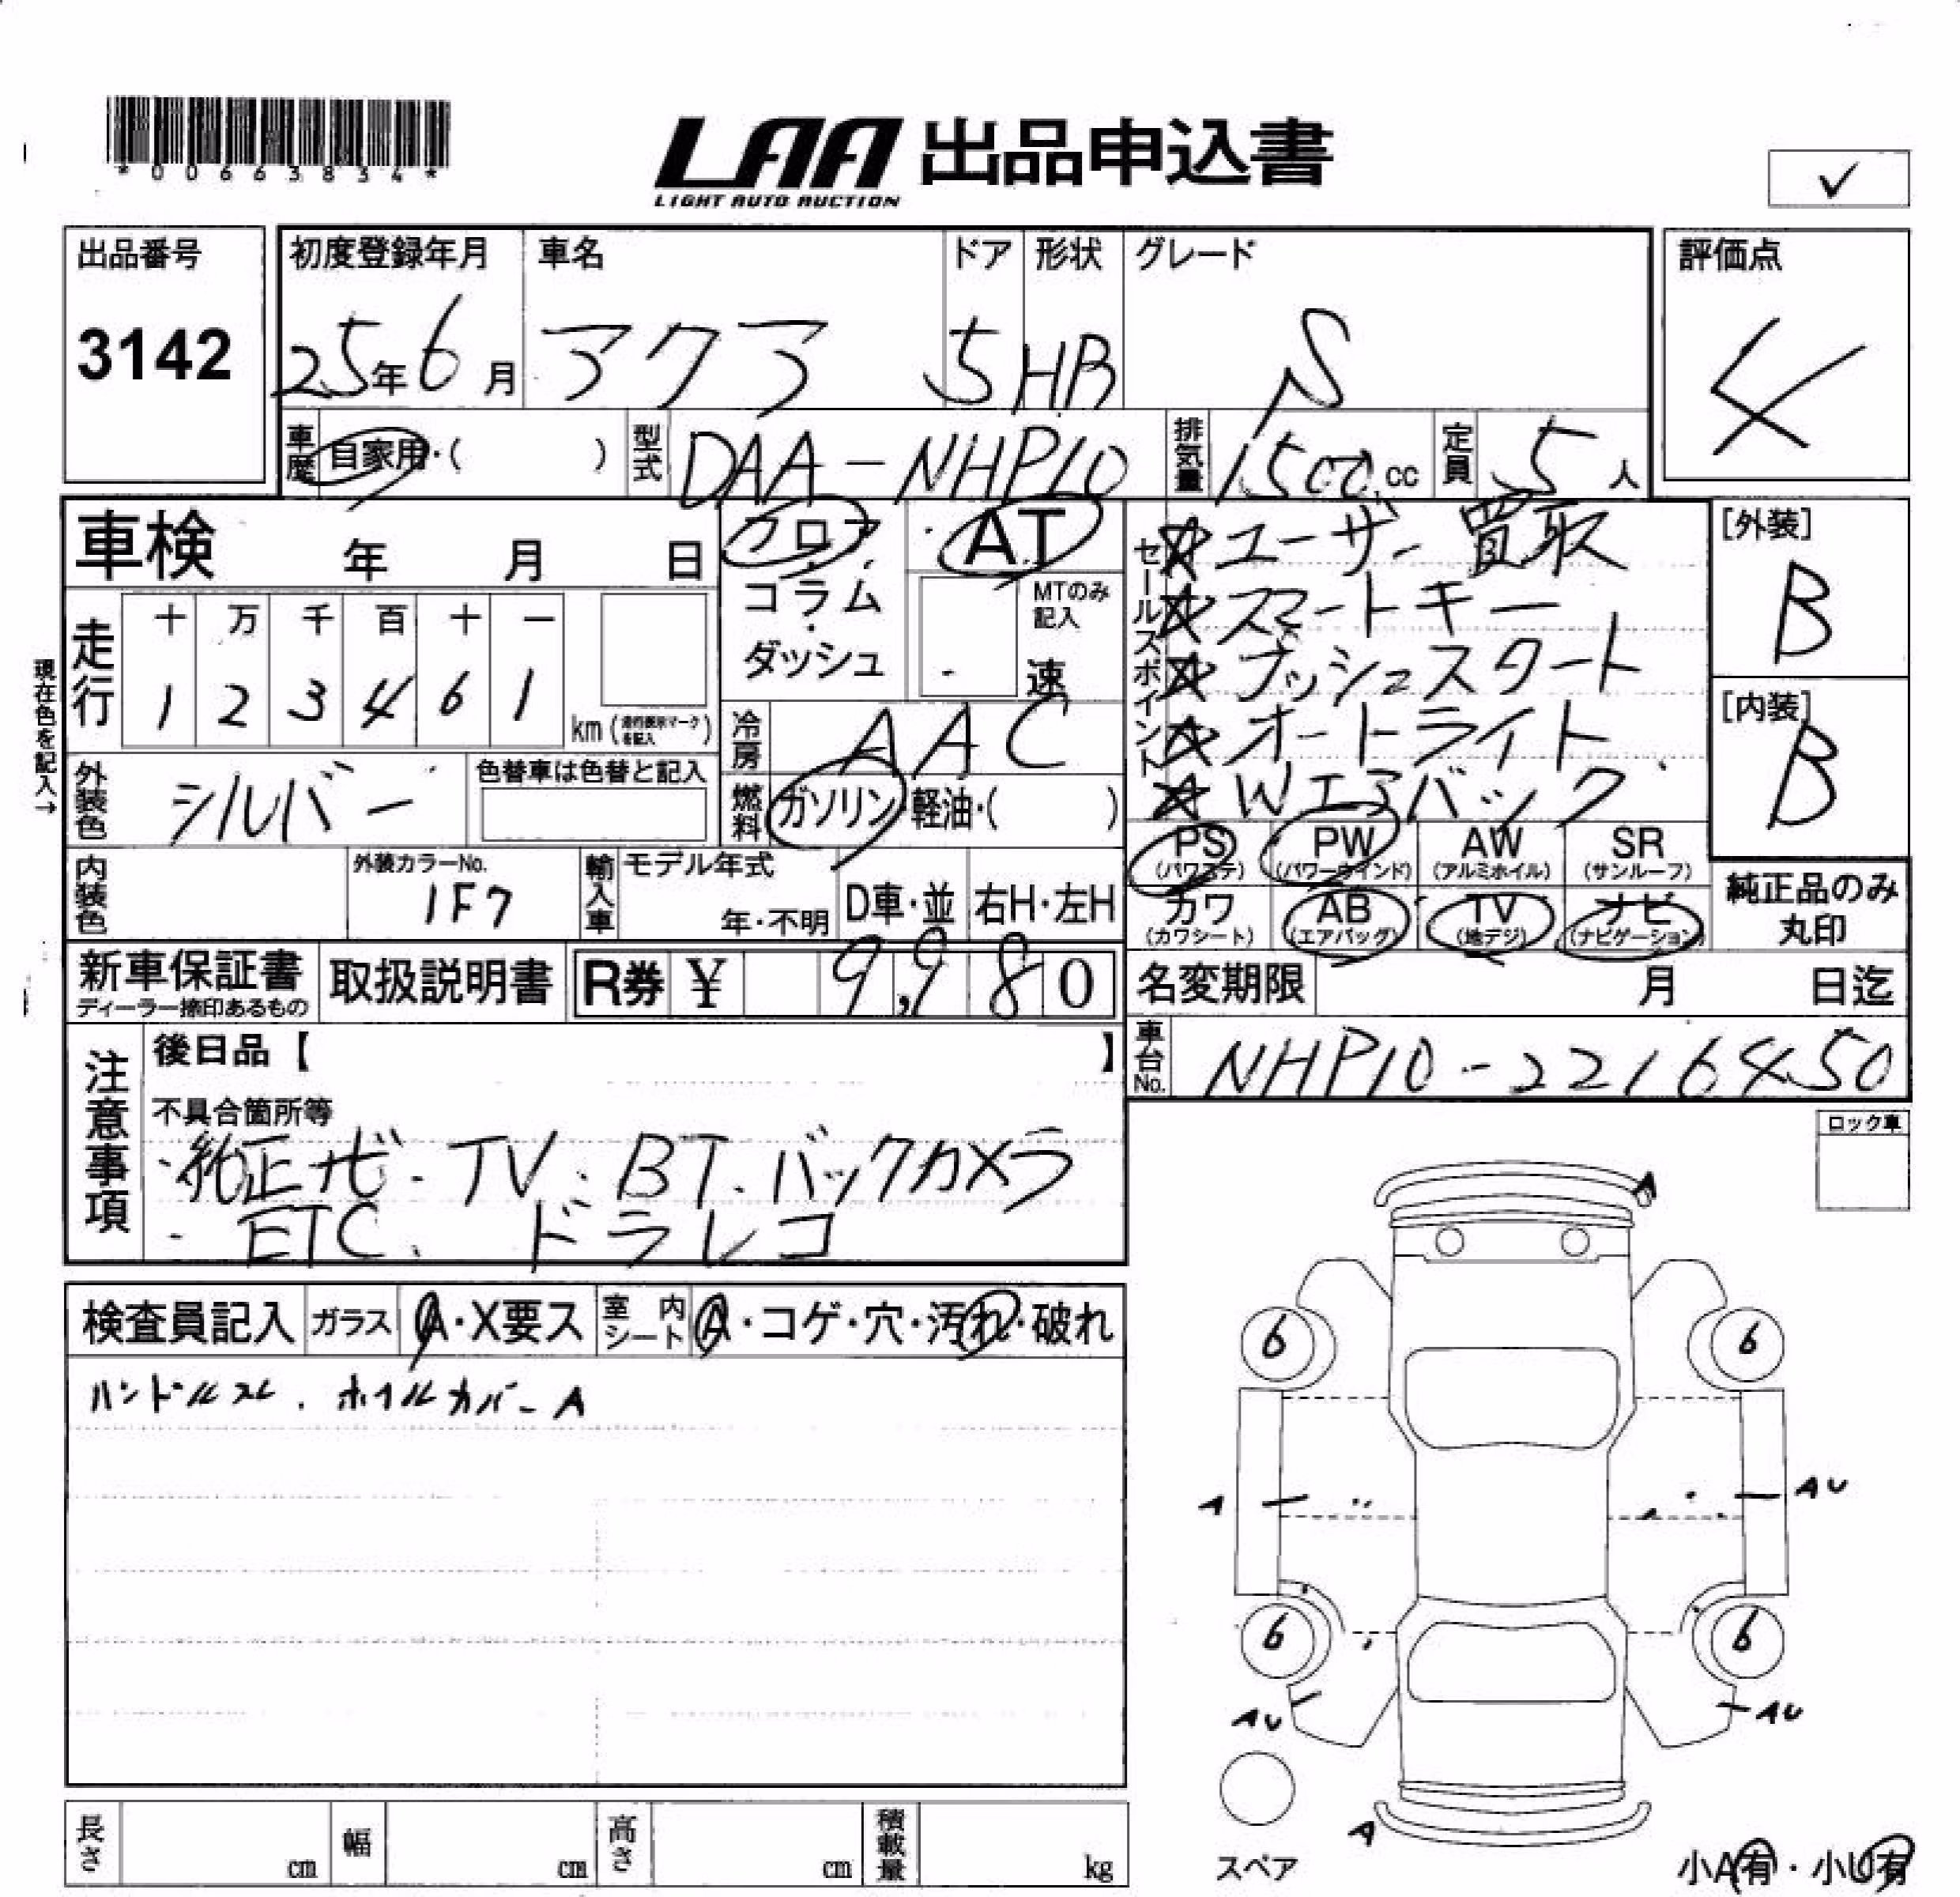 *00663834*
LAA 出品申込書
LIGHT AUTO AUCTION
✓
出品番号
3142
初度登録年月
25年6月
車名
アクア
ドア
5
形状
HB
グレード
S
評価点
4
車歴
自家用・( )
型式
DAA-NHP10
排気量
1500cc
定員
5人
車検 年 月 日
フロア
コラム
ダッシュ
AT
MTのみ記入
速
セールスポイント
☆ユーザー買取
☆スマートキー
☆プッシュスタート
☆オートライト
☆Wエアバッグ
[外装]
B
[内装]
B
現在色を記入→
走行
十 万 千 百 十 一
1 2 3 4 6 1
km(走行表示マークを記入)
冷房
AAC
外装色
シルバー
色替車は色替と記入
燃料
ガソリン・軽油・( )
内装色
外装カラーNo.
1F7
輸入車
モデル年式
年・不明
D車・並
右H・左H
PS (パワステ)
PW (パワーウインド)
AW (アルミホイル)
SR (サンルーフ)
カワ (カワシート)
AB (エアバッグ)
TV (地デジ)
ナビ (ナビゲーション)
純正品のみ丸印
新車保証書
ディーラー捺印あるもの
取扱説明書
R券 ¥ 9,980
名変期限 月 日迄
車台No.
NHP10-2216450
注意事項
後日品【 】
不具合箇所等
・純正ナビ・TV・BT・バックカメラ
・ETC、ドラレコ
ロック車
検査員記入
ガラス
A・X要ス
室内シート
A・コゲ・穴・汚れ・破れ
ハンドルスレ、ホイルカバーA
A
6 6
A AU
6 6
AU AU
A
スペア
長さ cm
幅 cm
高さ cm
積載量 kg
小A有・小U有